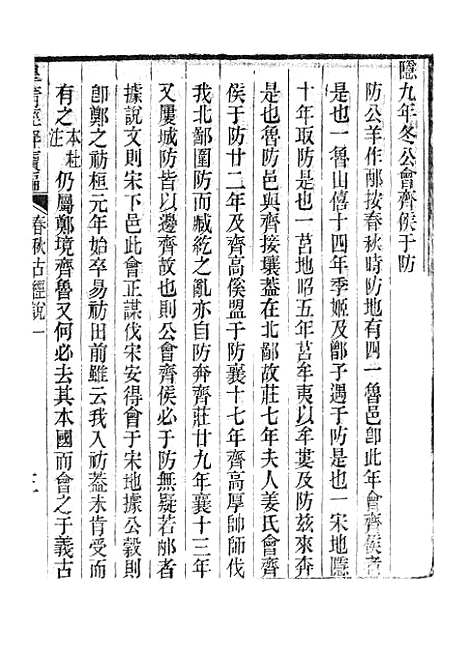 隱九年冬公會齊侯于防
防公羊作邴按春秋時防地有四一魯邑卽此年會齊侯者
是也一魯山僖十四年季姬及鄫子遇于防是也一宋地隱
十年取防是也一莒地昭五年莒牟夷以牟婁及防茲來奔
是也魯防邑與齊接壤葢在北鄙故莊七年夫人姜氏會齊
侯于防廿二年及齊高傒盟于防襄十七年齊高厚帥師伐
我北鄙圍防而臧紇之亂亦自防奔齊莊廿九年襄十三年
又屢城防皆以邊齊故也則公會齊侯必于防無疑若邴者
據說文則宋下邑此會正謀伐宋安得會于宋地據公穀則
卽鄭之祊桓元年始卒易祊田前雖云我入祊葢未肯受而
有之本杜注仍屬鄭境齊魯又何必去其本國而會之于義古
皇清經解續編
春秋古經說一